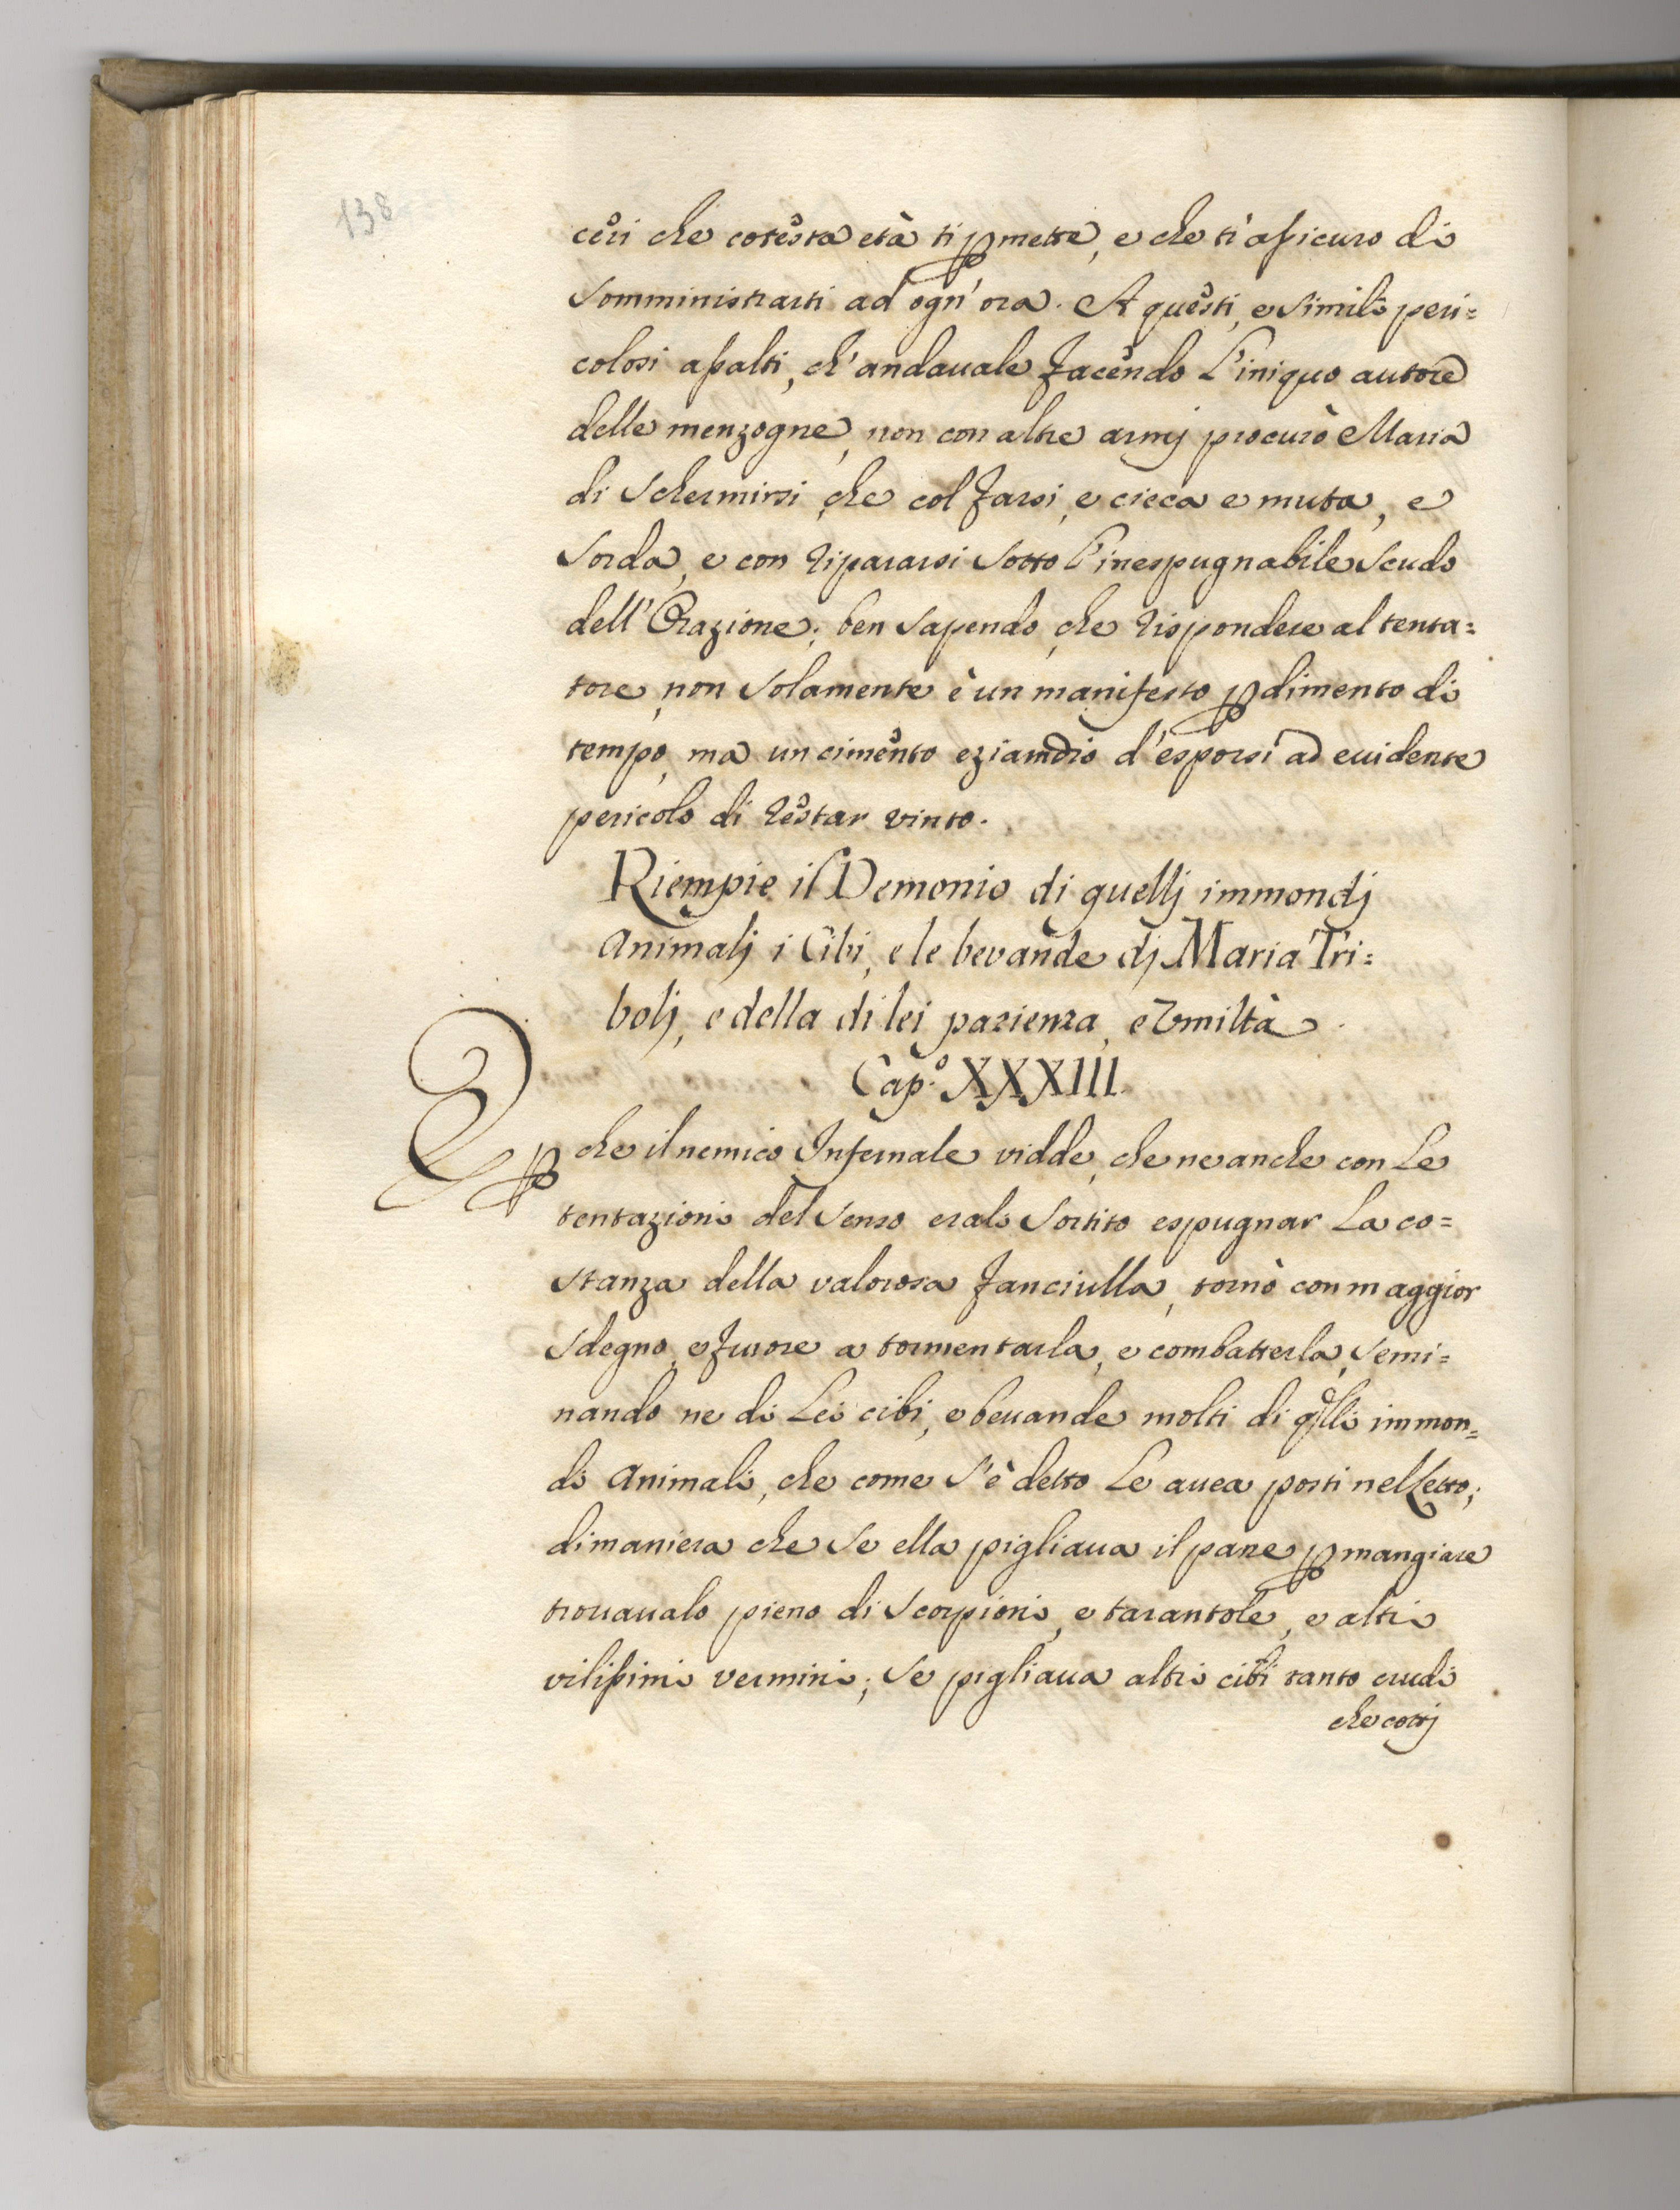 138
ceri che cotesta età ti ꝑmette, e che ti assicuro di
somministrarti ad ogn'ora. A questi, e simili peri=
colosi assalti, ch'andauale facendo l'iniquo autore
delle menzogne, non con altre armj procurò Maria
di schermirsi, che col farsi, e cieca e muta, e
sorda, e con ripararsi sotto l'inespugnabile scudo
dell'Orazione; ben sapendo, che rispondere al tenta=
tore, non solamente è un manifesto ꝑdimento di
tempo, ma un cimento eziamdio d'esporsi ad euidente
pericolo di restar vinto.
Riempie il Demonio di quellj immondj
Animalj i Cibi, e le bevande dj Maria Tri=
bolj, e della di lei pazienza, e Vmiltà.
Cap.º XXXIII.
ꝑche il nemico Infernale vidde, che ne anche con le
tentazioni del senso erale sortito espugnar la co=
stanza della valorosa fanciulla, tornò con maggior
sdegno, e furore a tormentarla, e combatterla, semi=
nando ne di lei cibi, e beuande molti di qlli immon=
di Animali, che come s'è detto le auea posti nel letto;
dimaniera che se ella pigliaua il pane ꝑ mangiare
trouaualo pieno di scorpioni, e tarantole, e altri
vilissimi vermini; se pigliaua altri cibi tanto crudi
che cottj